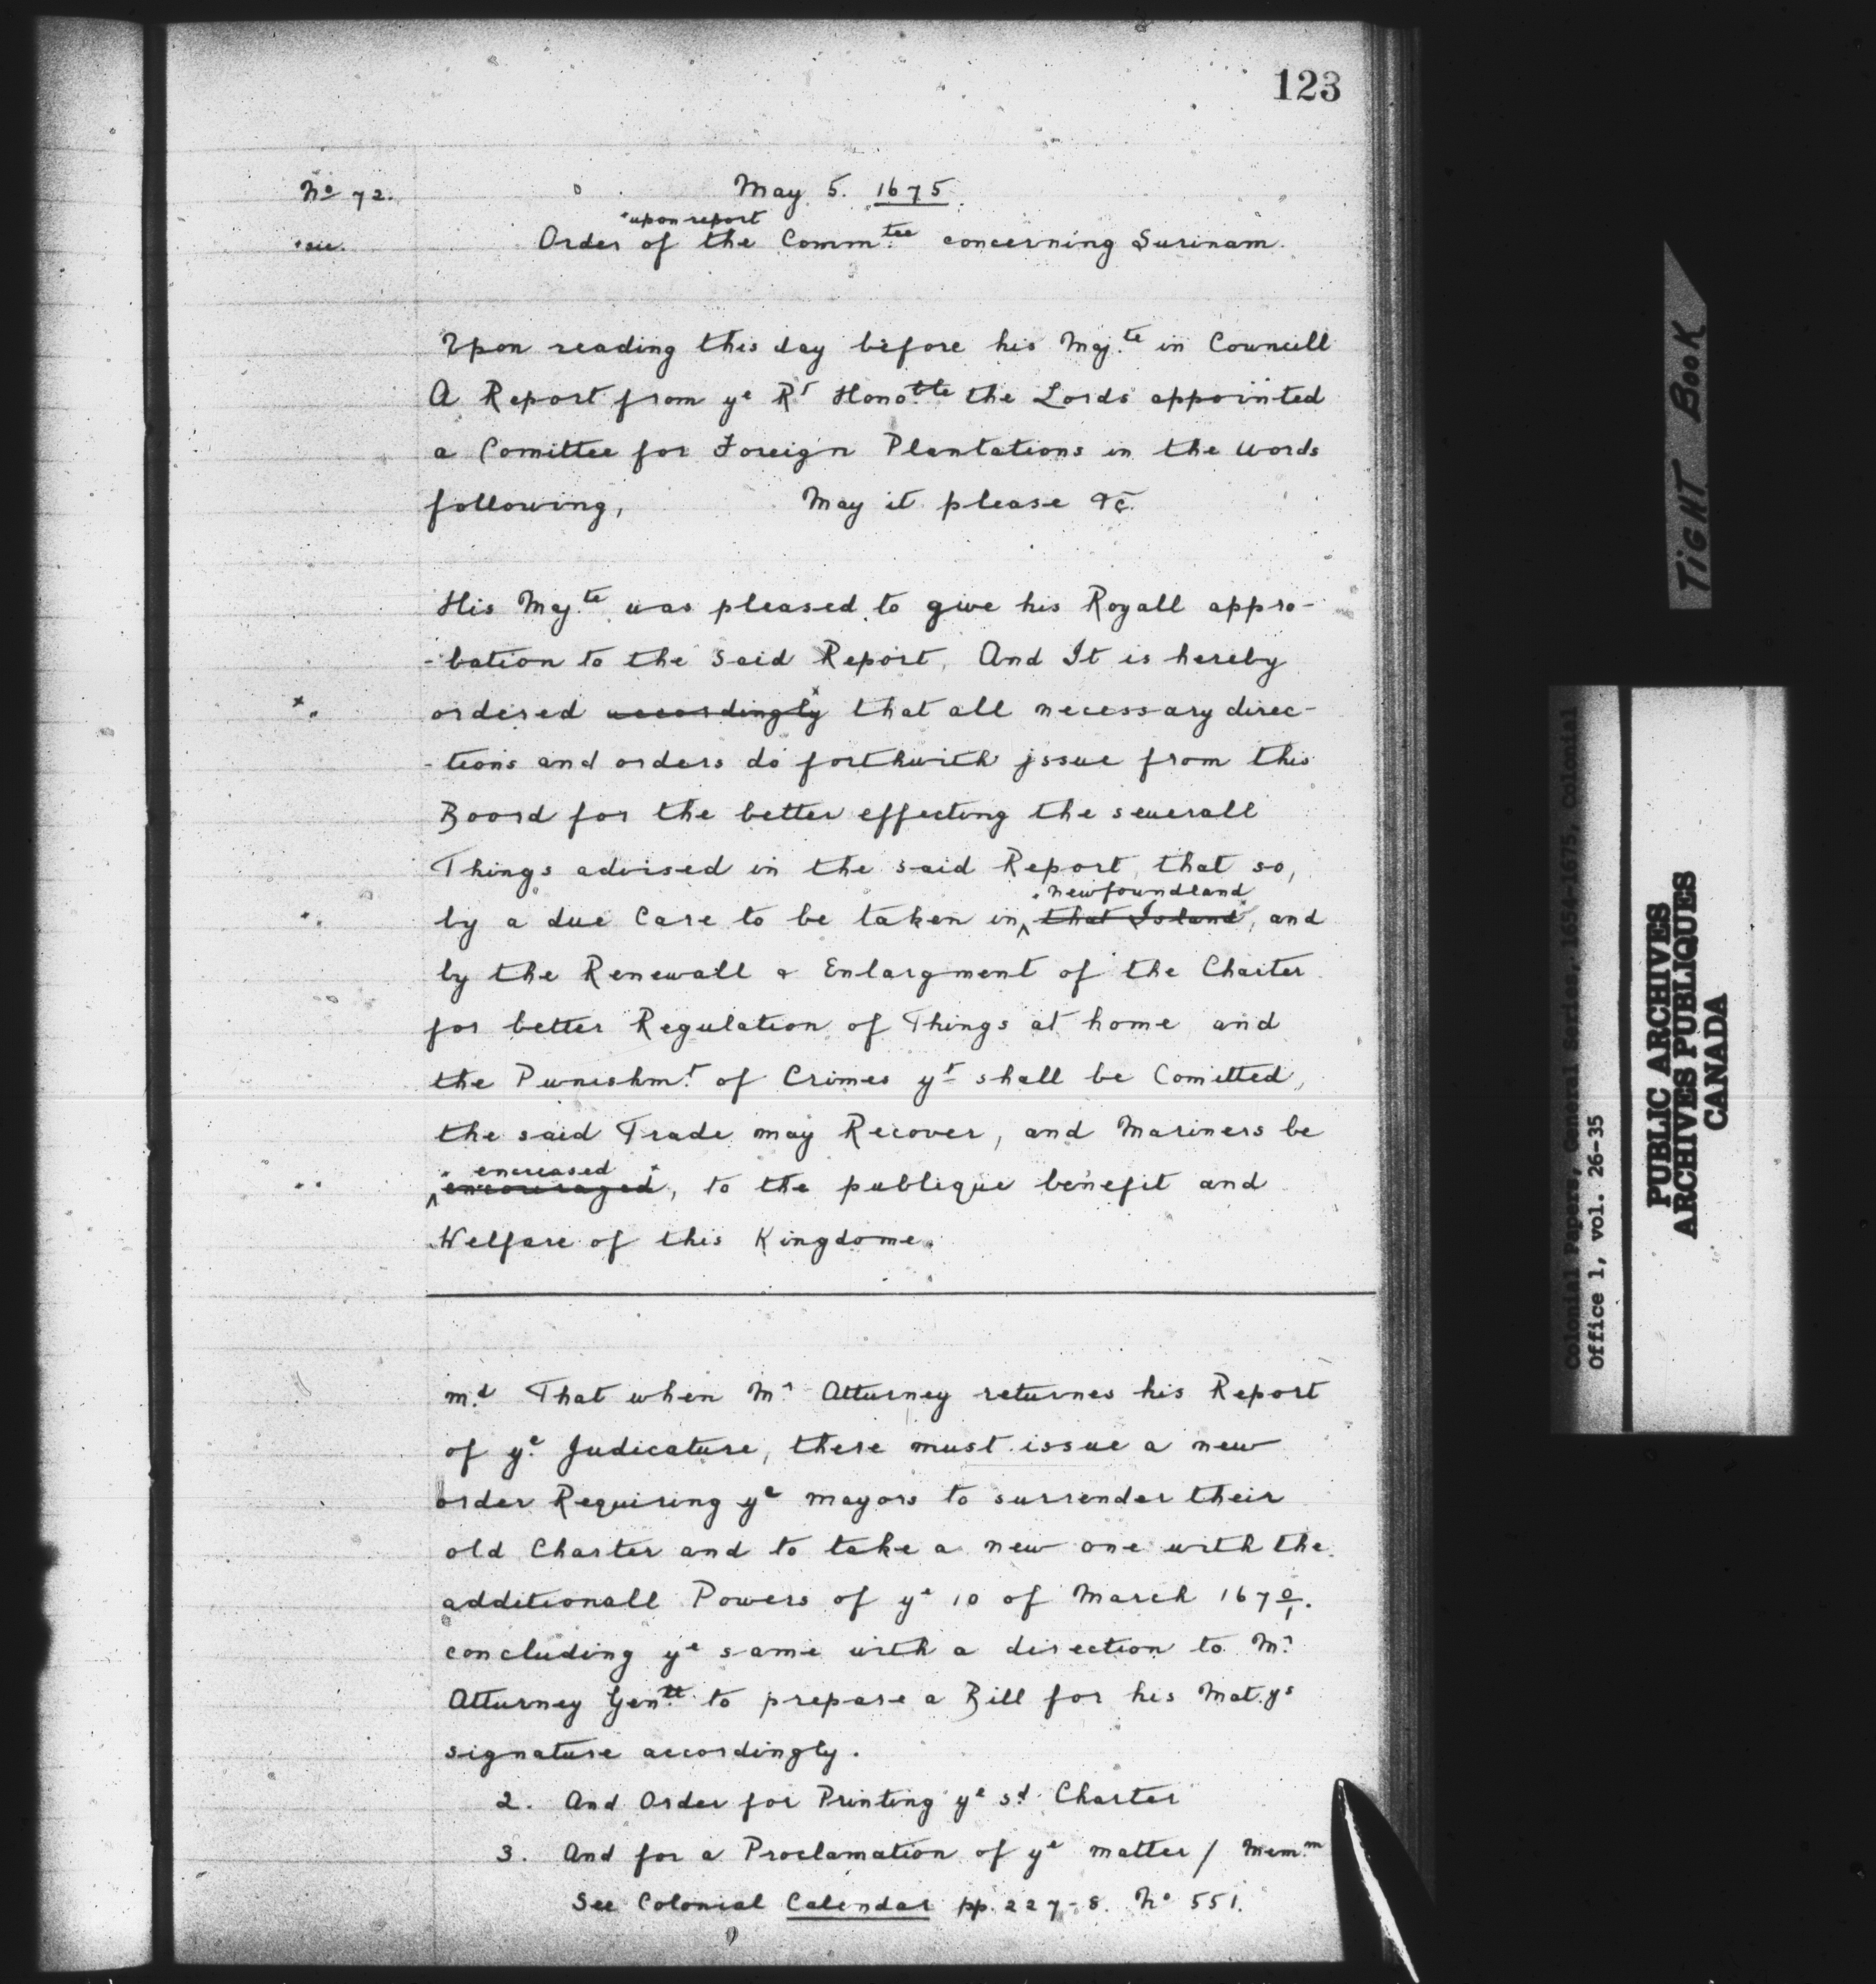 123
No 72.
May 5. 1675.
*upon report
*sic.
Order of the Comm.tee concerning Surinam.
Upon reading this day before his Maj.te in Councill
A Report from ye Rt Hono.ble the Lords appointed
a Comittee for Foreign Plantations in the words
following, May it please &c.
His Maj.te was pleased to give his Royall appro-
-bation to the said Report, And It is hereby
ordered accordingly that all necessary direc-
-tions and orders do forthwith jssue from this
Board for the better effecting the seuerall
Things advised in the said Report, that so,
newfoundland
by a due Care to be taken in ^ that Island, and
by the Renewall & Enlargment of the Charter
for better Regulation of Things at home and
the Punishm.t of Crimes yt shall be Comitted,
the said Trade may Recover, and Mariners be
encreased
^ encouraged, to the publique benefit and
Welfare of this Kingdome.
m.d That when Mr Atturney returnes his Report
of ye Judicature, there must issue a new
order Requiring ye mayors to surrender their
old Charter and to take a new one with the
additionall Powers of ye 10 of March 167 0/1.
concluding ye same with a direction to Mr
Atturney Gen.ll to prepare a Bill for his Mat.ys
signature accordingly.
2. And Order for Printing ye sd Charter
3. And for a Proclamation of ye matter / Mem.m
See Colonial Calendar pp. 227-8. No 551.
TIGHT BOOK
Colonial Papers, General Series, 1654-1675, Colonial
Office 1, vol. 26-35
PUBLIC ARCHIVES
ARCHIVES PUBLIQUES
CANADA